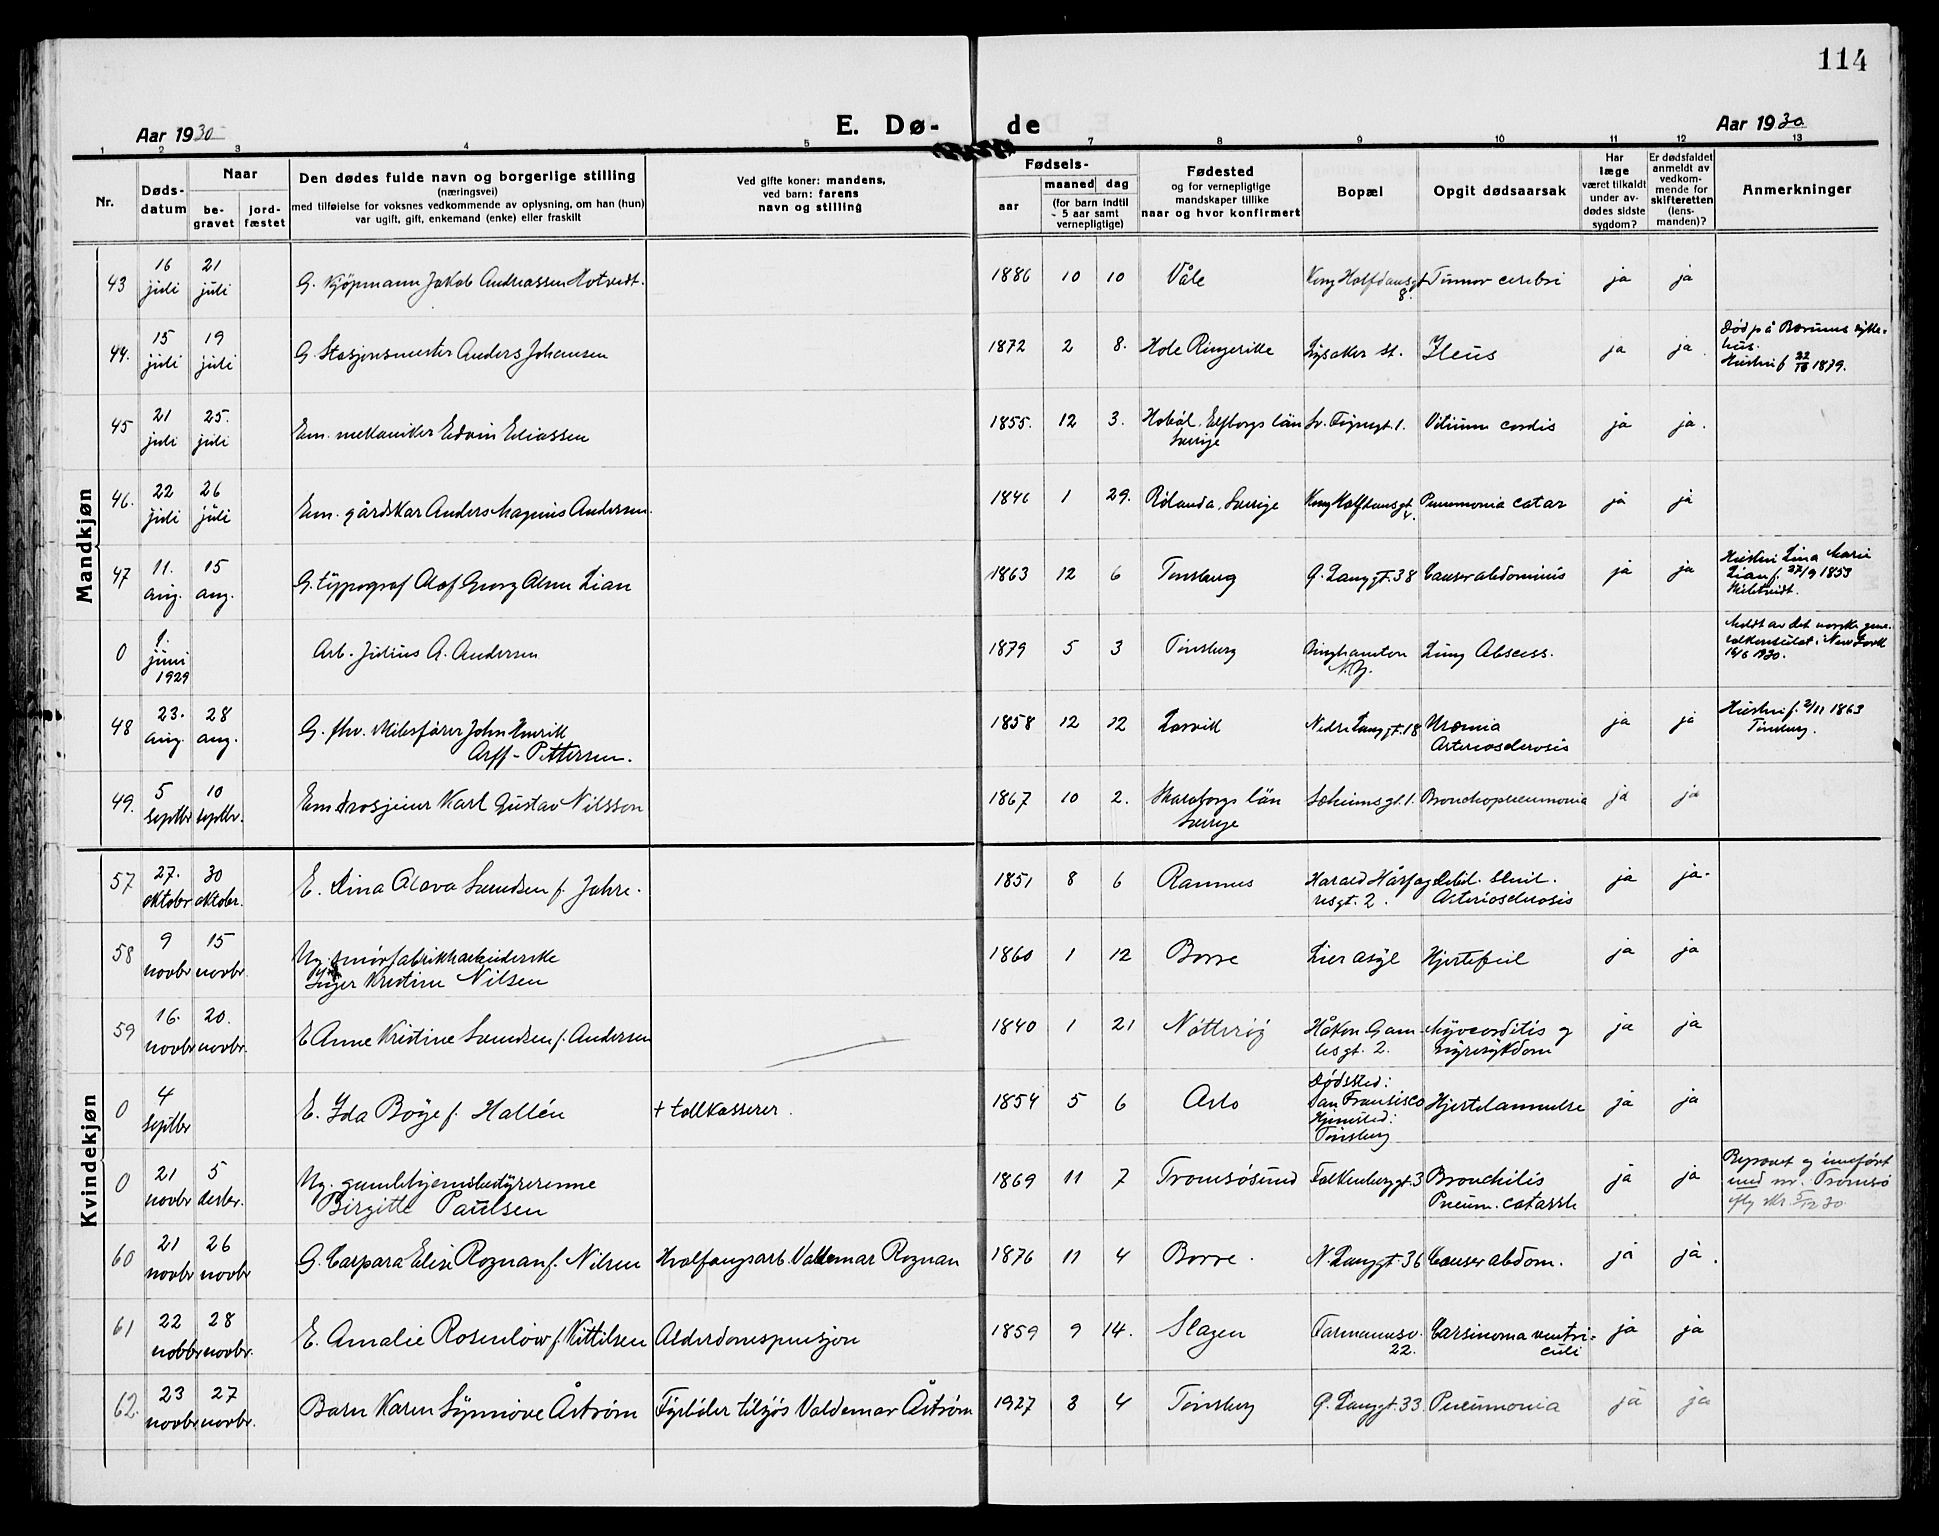 114
Aar 1930
E. Dø-
de
Aar 1930
1 2 3 4 5 7 8 9 10 11 12 13
Nr.
Døds-
datum
Naar
be-
gravet
jord-
fæstet
Den dødes fulde navn og borgerlige stilling
(næringsvei)
med tilføielse for voksnes vedkommende av oplysning, om han (hun)
var ugift, gift, enkemand (enke) eller fraskilt
Ved gifte koner: mandens,
ved barn: farens
navn og stilling
Fødsels-
aar
maaned
dag
(for barn indtil
5 aar samt
vernepligtige)
Fødested
og for vernepligtige
mandskaper tillike
naar og hvor konfirmert
Bopæl
Opgit dødsaarsak
Har
læge
været tilkaldt
under av-
dødes sidste
sygdom?
Er dødsfaldet
anmeldt av
vedkom-
mende for
skifteretten
(lens-
manden)?
Anmerkninger
Mandkjøn
43 16 juli 21 juli G. Kjöpmann Jakob Andreassen Hotvedt. 1886 10 10 Våle Kong Halfdansgt 8. Tumor cerebri ja ja
44. 15 juli 19 juli G Stasjonsmester Anders Johansen 1872 2 8. Hole Ringerike Lysaker st. Ileus ja ja. Död på Bærums syke-
hus.
Hustru f 1879.
45 21 juli 25. juli Em. mekaniker Edvin Eliassen 1855. 12 3. Elfborgs län Sverige Vitium cordis ja ja.
46. 22 juli 26 juli Em. gårdskar Anders Magnus Andersen. 1846 1 29. Rölanda, Sverige Kong Halfdansgt Pneumonia catar ja ja
47 11. aug. 15 aug. G. typograf Olof Georg Lian 1863 12 6 Tønsberg G. Langgt. 38 Cancer abdominis ja ja Hustru Lina Marie
Lian f. 27/9 1853
0 1. juni 1929 Arb. Julius A. Andersen 1879 5 3 Tønsberg Binghamton N.Y. Lung Abscess. Meldt av det norske gene-
ralkonsulat i New York
16/6 1930.
48 23. aug. 28 aug. G. fhv. John Henrik
Arff-Pettersen. 1858 12 12 Larvik Nedre Langgt. 18 Uræmia
Arteriosclerosis ja ja Hustru f. 2/11 1863
Tønsberg.
49. 5 septbr 10 septbr. Em drosjeeier Karl Gustav Nilsson 1867 10 2. Skaraborgs län
Sverige Sæheimsgt. 1. Bronchopneumonia ja ja
Kvindekjøn
57 27. oktober 30 oktober. E. Lina Olava Svendsen f. Jahre. 1851 8 6 Ramnes Harald Hårfag
resgt. 2. Debil. senil.
Arteriosclerosis ja ja.
58 9 novbr 15 novbr. Ug. smörfabrikkarbeiderske
Inger Kristine Nilsen 1860 1 12 Borre Lier asyl Hjertefeil ja ja
59 16. novbr 20. novbr. E Anne Kristine Svendsen f. Andersen 1840 1 21 Nötteröy Håkon Gam-
lesgt. 2. Myocarditis og
nyresykdom ja ja
0 4 septbr E. Ida Böye f. Hallén + tollkasserer. 1854 5 6 Oslo Dödssted:
San Fransisco
Hjemsted:
Tönsberg Hjertelammelse ja ja
0 21 novbr 5 desbr. Ug. gamlehjemsbestyrerinne
Birgitte Paulsen 1869 11 7 Tromsösund Falkenberggt. 3 Bronchitis
Pneum. catarrh ja ja Begravet og innfört
med nr. Tromsö
60 21 novbr 26 novbr G. Caspara Elise Rognan f. Nilsen Hvalfangsarb. Valdemar Rognan 1876 11 4 Borre. N. Langgt. 36 Cancer abdom. ja ja.
61 22 novbr 28 novbr. E. Amalie Rosenlöw f. Kittilsen Alderdomspensjon 1859 9 14. Slagen Farmannsv. 22. Carsinoma ventri-
culi ja ja
62. 23 novbr 27 novbr. Barn Karen Synnöve Åström Fyrböter tilsjös Valdemar Åström 1927 3 4 Tönsberg G. Langgt. 33 Pneumonia ja ja